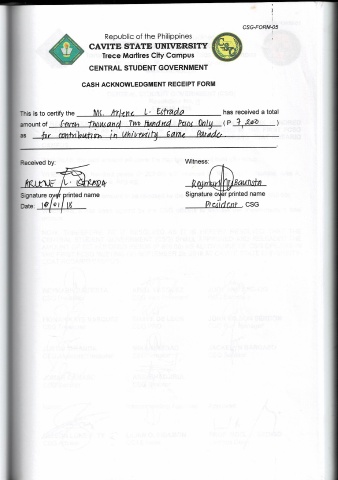 CSG-FORM-05
Republic of the Philippines
CAVITE STATE UNIVERSITY
Trece Martires City Campus
CENTRAL STUDENT GOVERNMENT
CASH ACKNOWLEDGMENT RECEIPT FORM
This is to certify the Ms. Arlene L. Estrada has received a total
amount of Seven Thousand Two Hundred Pesos Only (P 7,200)
as for contribution in University Game Parade.
Received by: Witness:
ARLENE L. ESTRADA Bautista
Signature over printed name Signature over printed name
Date: 10/01/18 President, CSG